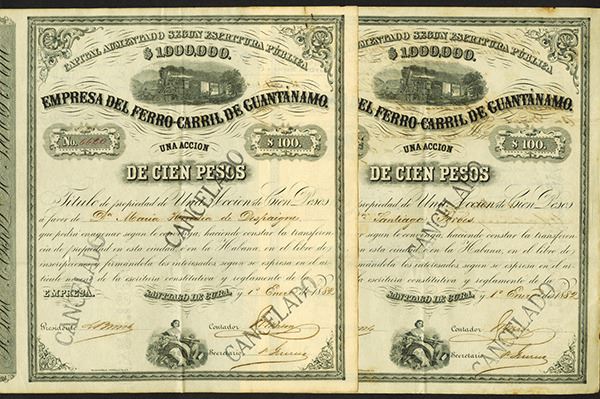 CAPITAL AUMENTADO SEGUN ESCRITURA PÚBLICA
$1,000,000.
EMPRESA DEL FERRO-CARRIL DE GUANTÁNAMO.
No.
UNA ACCION
$100.
DE CIEN PESOS
Título de propiedad de Una Accion de Cien Pesos
á favor de Dª Maria de Despaigne
que podrá enagenar segun le convenga, haciendo constar la transferen
cia de propiedad en esta ciudad ó en la Habana, en el libro de
inscripciones firmándola los interesados segun se espresa en el ar-
tículo de la escritura constitutiva y reglamento de
EMPRESA. SANTIAGO DE CUBA, y 1º Enero de 1882
Presidente Contador
Secretario
CANCELADO
CANCELADO
CANCELADO
AUMENTADO SEGUN ESCRITURA PÚBLICA
$1,000,000.
DEL FERRO-CARRIL DE GUANTÁNAMO.
UNA ACCION
$100.
DE CIEN PESOS
propiedad de Una Accion de Cien Pesos
Santiago
segun le convenga, haciendo constar la transferen
en esta ciudad ó en la Habana, en el libro de
firmándola los interesados segun se espresa en el ar-
de la escritura constitutiva y reglamento de
SANTIAGO DE CUBA, y 1º Enero de 1882
Contador
Secretario
CANCELADO
CANCELADO